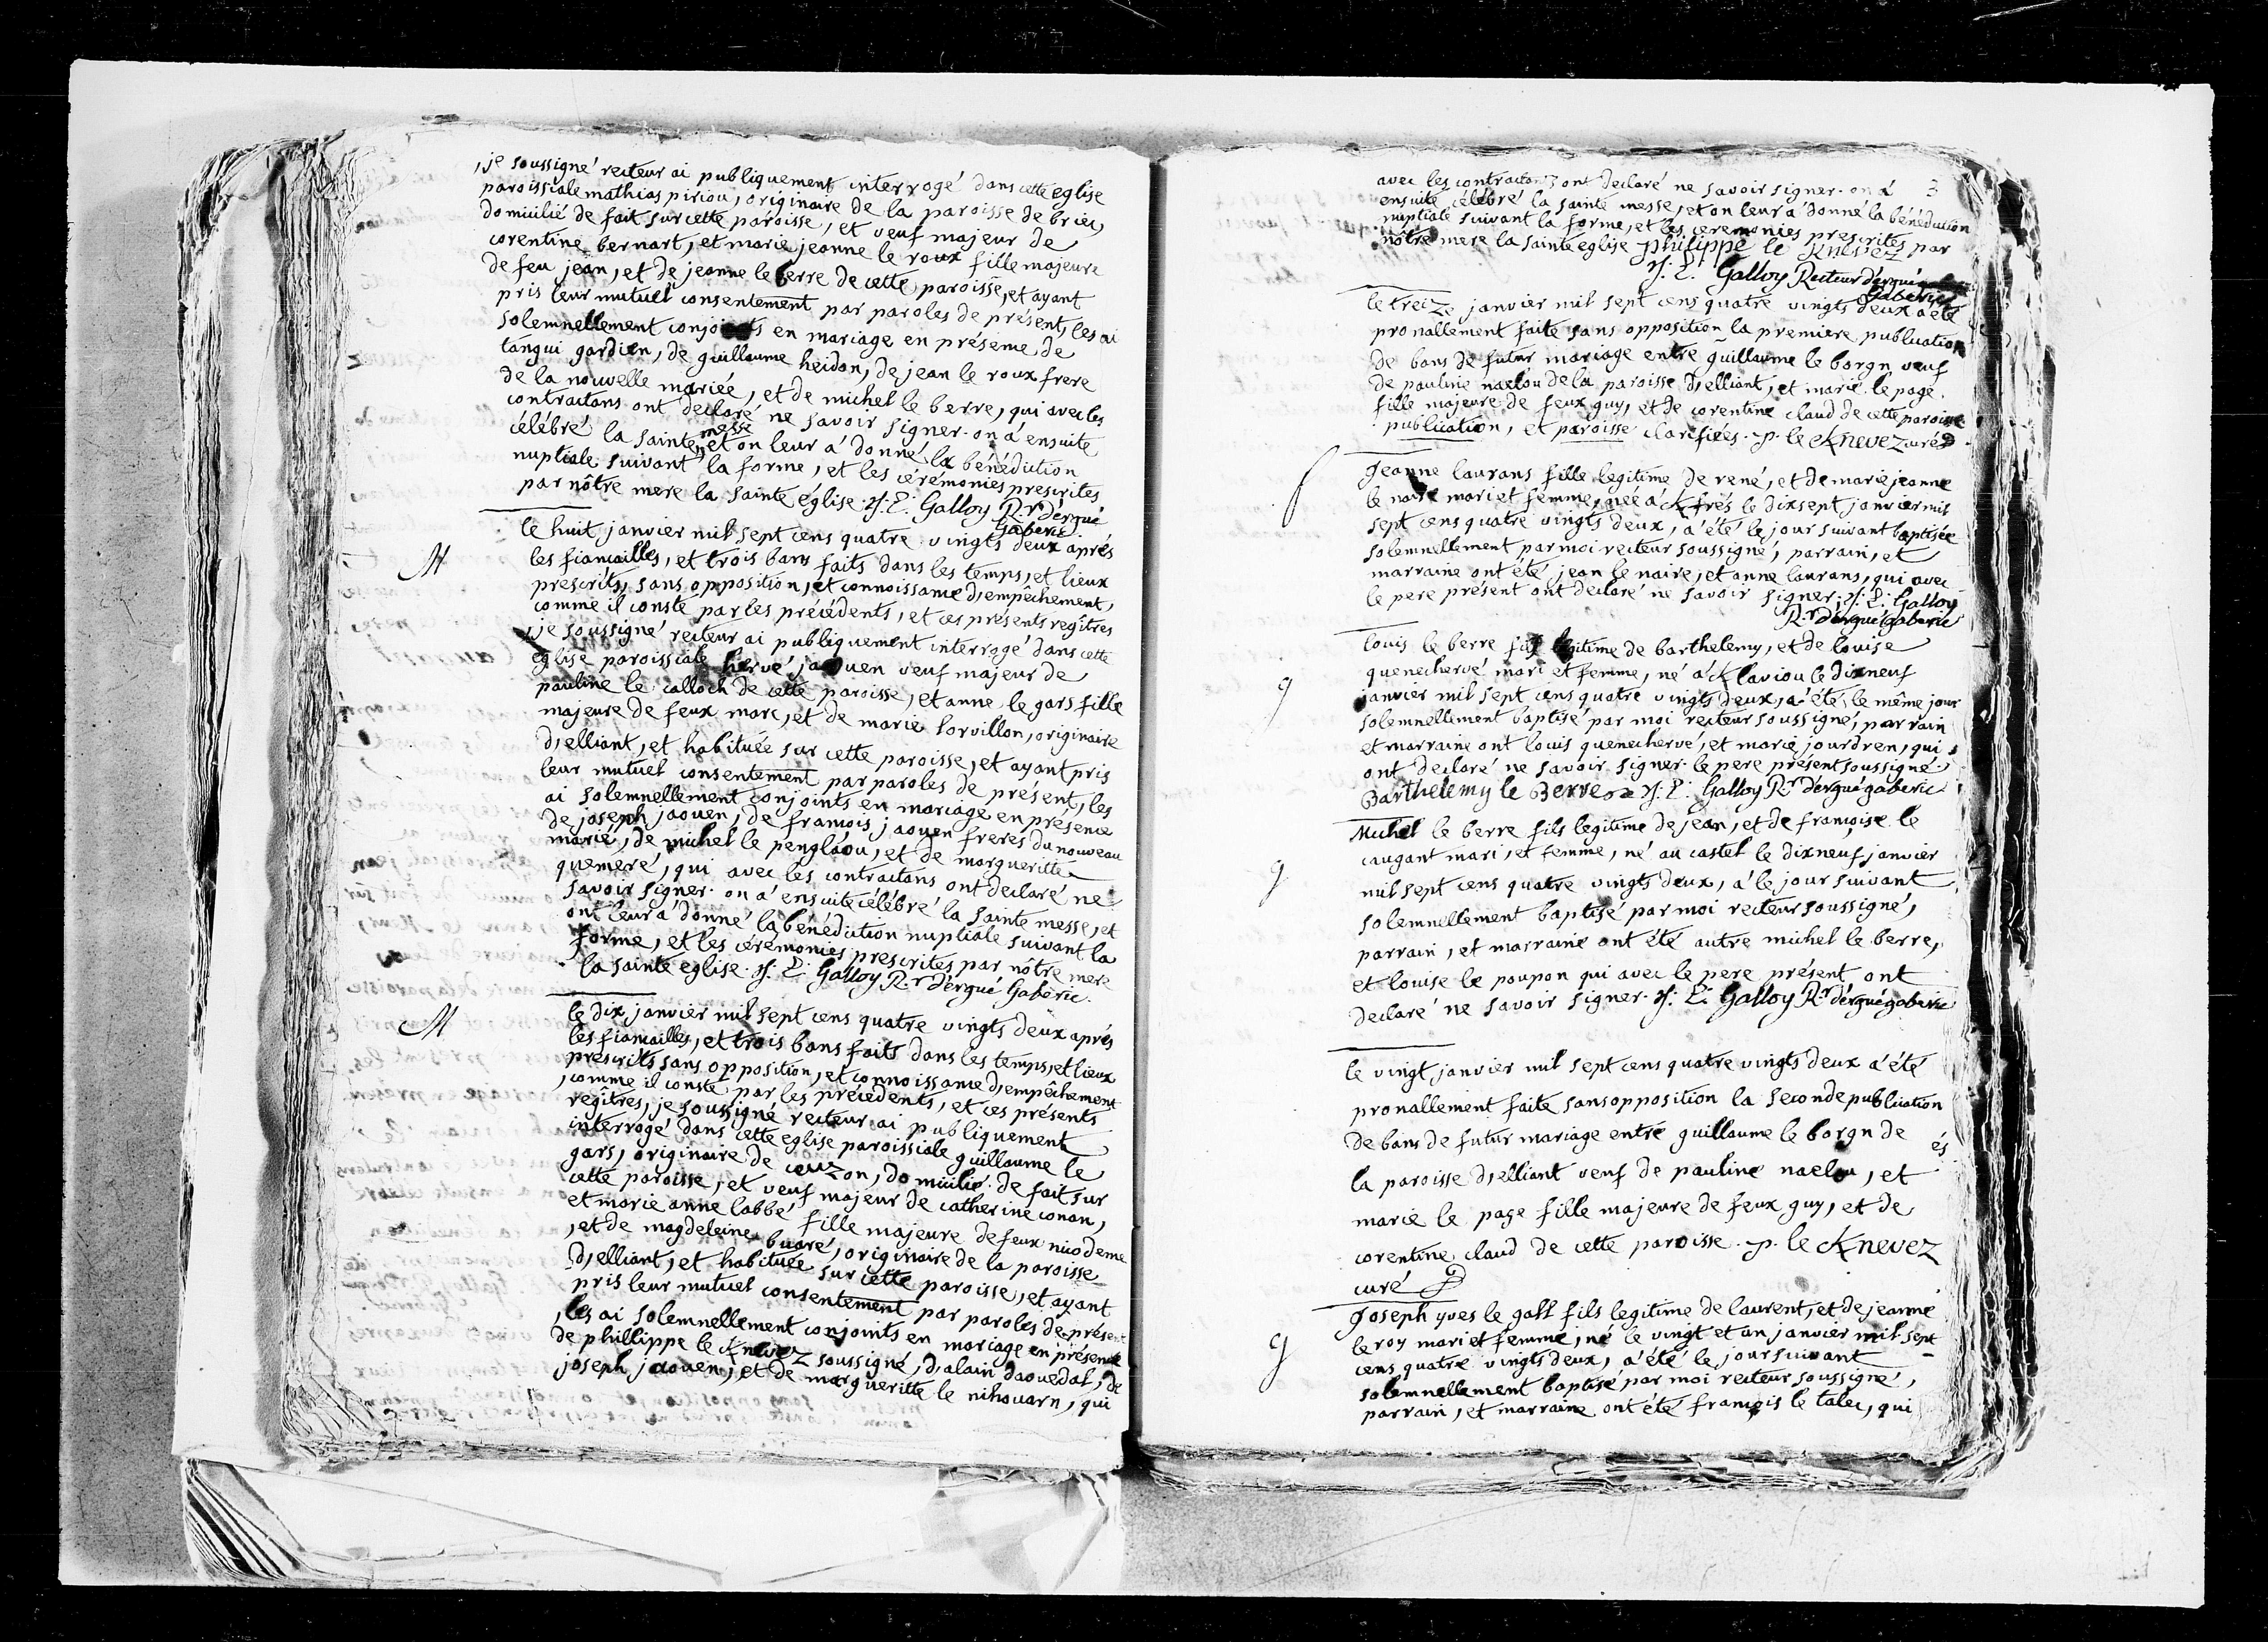 , je soussigné recteur ai publiquement interrogé dans cette eglise
paroissiale mathias piriou, originaire de la paroisse de briec,
domicilié de fait sur cette paroisse, et veuf majeur de
corentine bernart, et marie jeanne le roux fille majeure
de feu jean, et de jeanne le berre de cette paroisse, et ayant
pris leur mutuel consentement par paroles de présent, les ai
solemnellement conjoints en mariage en présence de
tangui gardien, de guillaume heidon, de jean le roux frere
de la nouvelle mariée, et de michel le berre, qui avec les
contractans ont declaré ne savoir signer. on a' ensuite
célébré la sainte messe et on leur a' donné la bénédiction
nuptiale suivant la forme, et les cérémonies prescrites
par nôtre mere la sainte église. J: E: Galloy R.r d'ergué
Gaberic
M le huit janvier mil sept cens quatre vingts deux aprés
les fiancailles, et trois bans faits dans les temps, et lieux
prescrits, sans opposition, et connoissance d'empêchement,
comme il conste par les précédents, et ces présents regîtres
, je soussigné recteur ai publiquement interrogé dans cette
eglise paroissiale hervé jaouen veuf majeur de
pauline le calloch de cette paroisse, et anne le gars fille
majeure de feux marc, et de marie lorvillon, originaire
d'elliant, et habituée sur cette paroisse, et ayant pris
leur mutuel consentement par paroles de présent, les
ai solemnellement conjoints en mariage en présence
de joseph jaouen, de francois jaouen freres du nouveau
marié, de michel le penglaou, et de margueritte
quemeré, qui avec les contractans ont declaré ne
savoir signer. on a' ensuite célébré la sainte messe, et
ont leur a' donné la bénédiction nuptiale suivant la
forme, et les cérémonies prescrites par nôtre mere
la sainte eglise. J: E: Galloy R.r d'ergué Gaberic.
M le dix janvier mil sept cens quatre vingts deux aprés
les fiancailles, et trois bans faits dans les temps, et lieux
prescrits sans opposition, et connoissance d'empêchement
, comme il conste par les précédents, et ces présents
regîtres, je soussigné recteur ai publiquement
interrogé dans cette eglise paroissiale guillaume le
gars, originaire de cuzon, domicilié de fait sur
cette paroisse, et veuf majeur de catherine conan,
et marie anne labbé fille majeure de feux nicodeme
, et de magdeleine buaré, originaire de la paroisse
d'elliant, et habituée sur cette paroisse, et ayant
pris leur mutuel consentement par paroles de présent
, les ai solemnellement conjoints en mariage en présence
de phillippe le Knevez soussigné, d'alain daouedal, de
joseph jaouen, et de margueritte le nihouarn, qui
3
avec les contractans ont declaré ne savoir signer. on a'
ensuite célébré la sainte messe, et on leur a' donné la bénédiction
nuptiale suivant la forme, et les ceremonies prescrites par
nôtre mere la sainte eglise philippe le Knevez
J: E: Galloy Recteur d'ergué
Gaberic
le treize janvier mil sept cens quatre vingts deux a été
pronallement faite sans opposition la premiere publication
de bans de futur mariage entre guillaume le borgn veuf
de pauline naelou de la paroisse d'elliant, et marie le page
fille majeure de feux guy, et de corentine claud de cette paroisse
publication, et paroisse clarifiées. p. le Knevez curé
f Jeanne laurans fille legitime de rené, et de marie jeanne
le naire mari et femme, née a' Kfrés le dixsept janvier mil
sept cens quatre vingts deux, a' été le jour suivant baptisée
solemnellement par moi recteur soussigné, parrain, et
marraine ont été jean le naire, et anne laurans, qui avec
le pere présent ont declaré ne savoir signer; J: E: Galloy
R.r d'erguégaberic
g louis le berre fils legitime de barthelemy, et de louise
quenechervé mari et femme, né a' Klaviou le dixneuf
janvier mil sept cens quatre vingts deux, a' été, le même jour
solemnellement baptisé par moi recteur soussigné, parrain
et marraine ont louis quenechervé, et marie jourdren, qui
ont declaré ne savoir signer. le pere présent soussigné
Barthelemy le Berre J: E: Galloy R.r d'erguégaberic
g Michel le berre fils legitime de jean, et de françoise le
caugant mari, et femme, né au castel le dixneuf janvier
mil sept cens quatre vingts deux, a' le jour suivant
solemnellement baptisé par moi recteur soussigné,
parrain, et marraine ont été autre michel le berre,
et louise le poupon qui avec le pere présent ont
declaré ne savoir signer. J: E: Galloy R.r d'erguégaberic
le vingt janvier mil sept cens quatre vingts deux a' été
pronallement faite sans opposition la seconde publication
de bans de futur mariage entre guillaume le borgn de
la paroisse d'elliant veuf de pauline naelou, et
marie le page fille majeure de feux guy, et de
corentine claud de cette paroisse. p. le Knevez
curé
g Joseph yves le gall fils legitime de laurent, et de jeanne
le roy mari et femme, né le vingt et un janvier mil sept
cens quatre vingts deux, a' été le jour suivant
solemnellement baptisé par moi recteur soussigné,
parrain, et marraine ont été francois le talec, qui